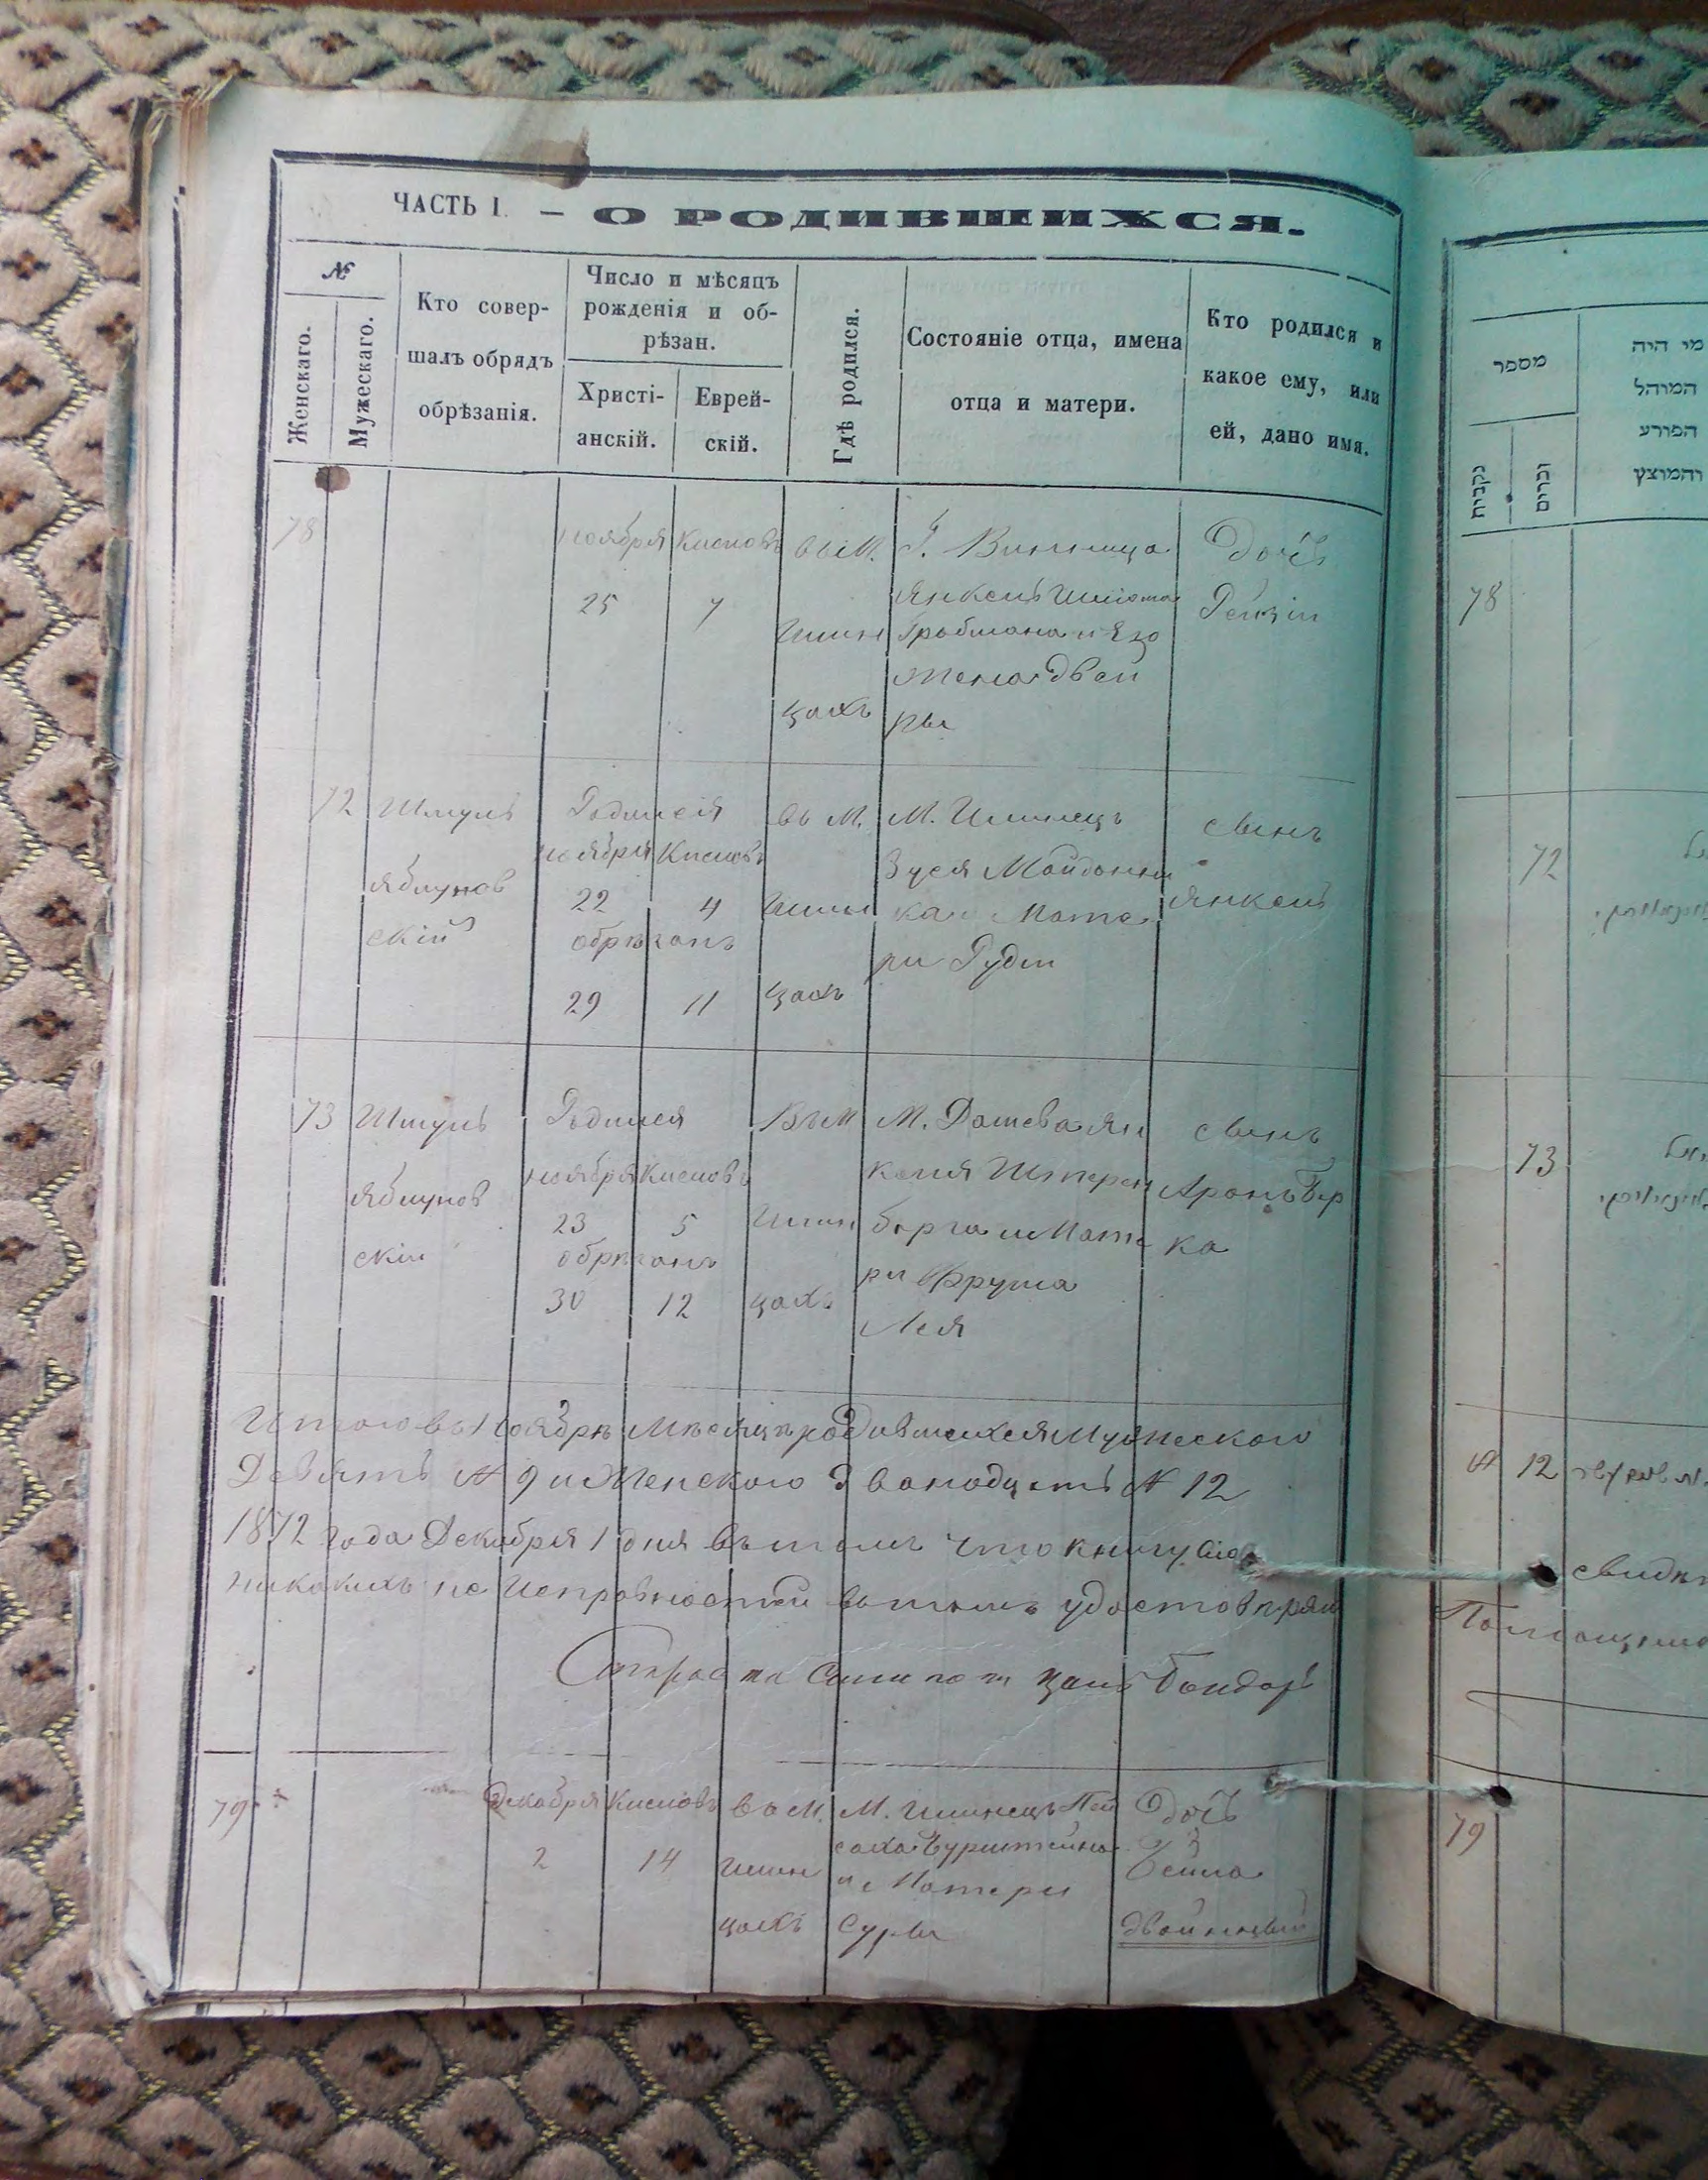 ЧАСТЬ I. – О РОДИВШИХСЯ.
№
Женскаго.
Мужескаго.
Кто совер-
шалъ обрядъ
обрѣзанія.
Число и мѣсяцъ
рожденія и об-
рѣзан.
Христі-
анскій.
Еврей-
скій.
Гдѣ родился.
Состояніе отца, имена
отца и матери.
Кто родился и
какое ему, или
ей, дано имя.
78
ноября Кислов
25 7
въ М.
Илин
цахъ
Г. Винница
Янкель
и Его
жена Двой
ры
Дочь
Рейзя
72
Шмуль
Яблунов
скій
Родился
ноября Кислов
22 4
обрѣзанъ
29 11
въ М.
Илин
цахъ
М. Илинец
Зуся Майданни
ка Мате
ри Руди
сынъ
Янкель
73
Шмуль
Яблунов
скій
Родился
ноября Кислов
23 5
обрѣзанъ
30 12
Въ М
Илин
цахъ
М. Дашева Ян
келя Штерен
берга и Мате
ри Фрума
Лея
сынъ
Аронъ Бер
ка
Итого въ Ноябрѣ Мѣсяцѣ родившихся Мужеского
Девять № 9 и Женского Двенадцать № 12
1872 года Декабря 1 дня въ томъ что книгу сію
никакихъ не Исправностей въ томъ удостовѣряю
Староста Бондарь
79
Декабря Кислов
2 14
въ М.
Илин
цахъ
М. Илинецъ Пей
саха Бурштейна
и Матери
Суры
Дочь
Бейла
двойнцый
מספר
נקבות
זכרים
מי היה
המוהל
הפורע
והמוצץ
78
72
73
№ 12
79